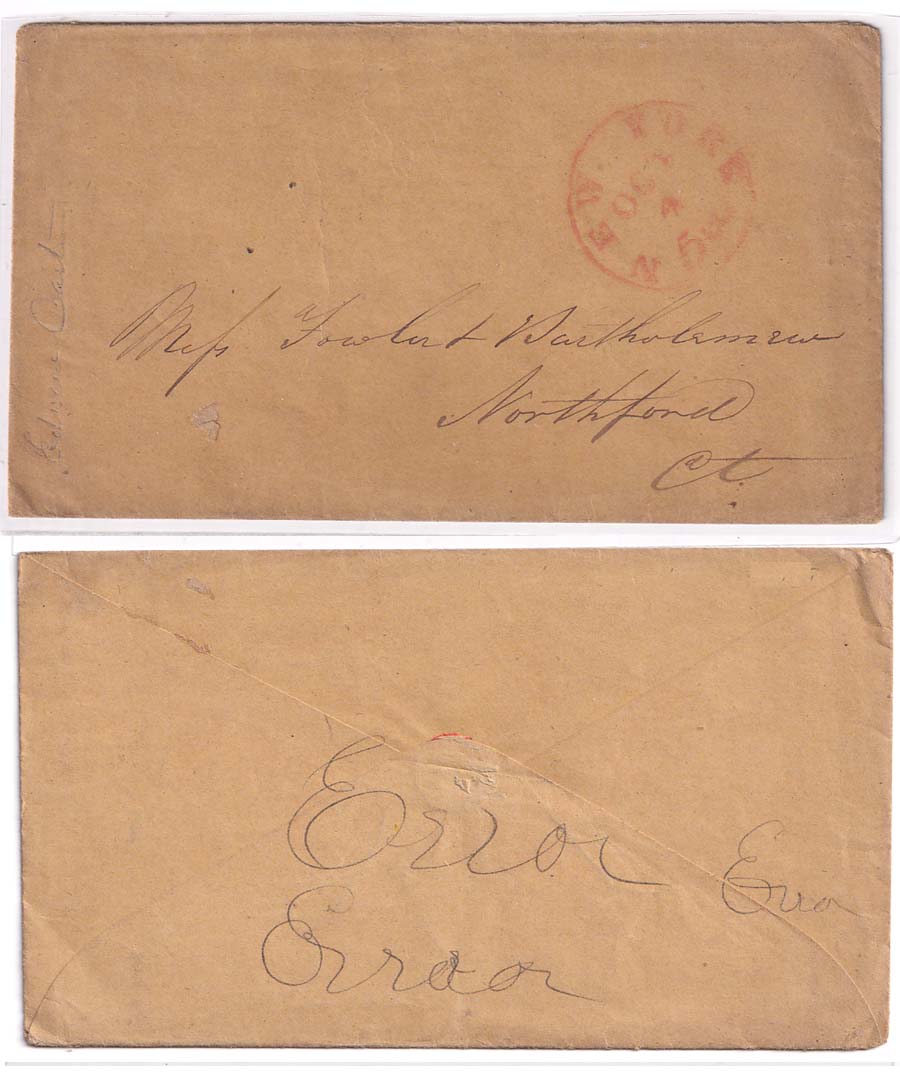 NEW YORK
OCT
4
5cts
Mess Fowler & Bartholomew
Northford
Ct.
Error
Erro
Error